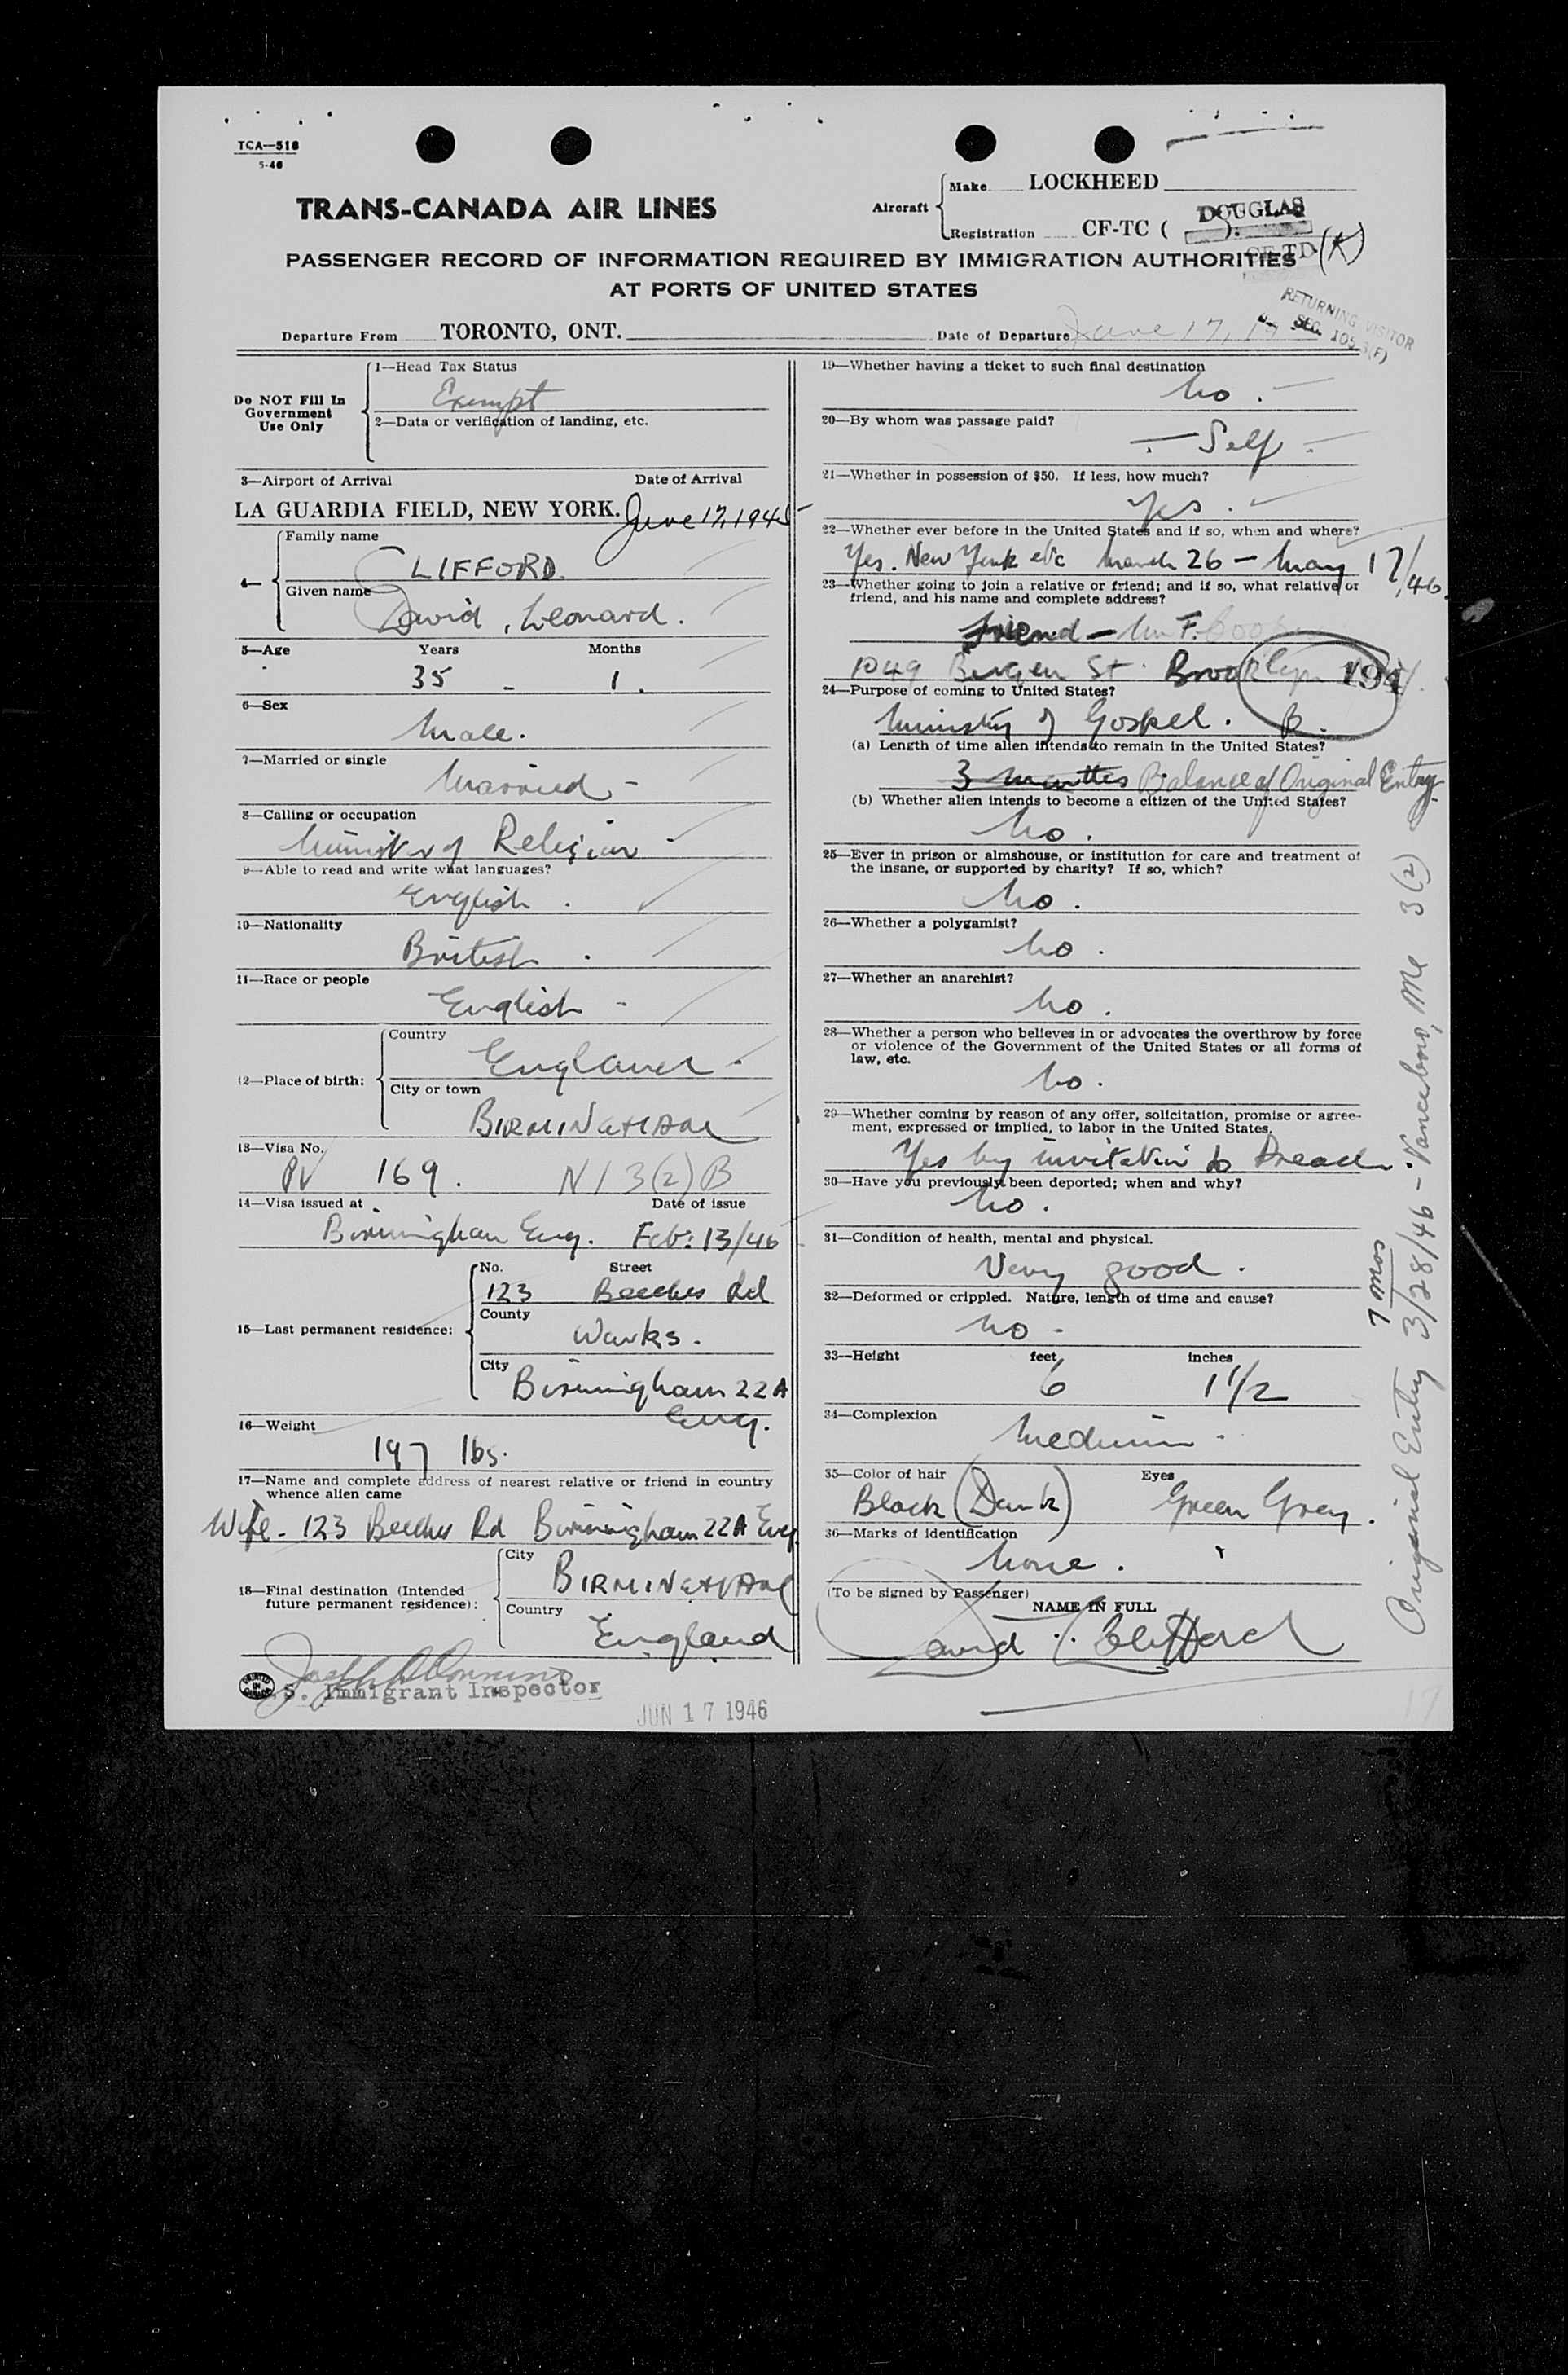 TCA—518
5-46
TRANS-CANADA AIR LINES
Aircraft
Make LOCKHEED
Registration CF-TC ( ).
DOUGLAS
CF-TD (K)
PASSENGER RECORD OF INFORMATION REQUIRED BY IMMIGRATION AUTHORITIES
AT PORTS OF UNITED STATES
RETURNING VISITOR
SEC. 105.3(F)
Departure From TORONTO, ONT. Date of Departure June 17, 19
Do NOT Fill In
Government
Use Only
1—Head Tax Status
Exempt
2—Data or verification of landing, etc.
3—Airport of Arrival Date of Arrival
LA GUARDIA FIELD, NEW YORK. June 17, 1946
4—
Family name
CLIFFORD.
Given name
David, Leonard.
5—Age Years Months
35 - 1.
6—Sex
Male.
7—Married or single
Married -
8—Calling or occupation
Minister of Religion -
9—Able to read and write what languages?
English .
10—Nationality
British .
11—Race or people
English -
12—Place of birth:
Country
England.
City or town
BIRMINGHAM
13—Visa No.
PV 169. N13(2)B
14—Visa issued at Date of issue
Birmingham Eng. Feb: 13/46
15—Last permanent residence:
No. Street
123 Beeches Rd
County
Warks.
City
Birmingham 22A
Eng.
16—Weight
197 lbs.
17—Name and complete address of nearest relative or friend in country
whence alien came
Wife - 123 Beeches Rd Birmingham 22A Eng.
18—Final destination (Intended
future permanent residence):
City
BIRMINGHAM
Country
England
S. Immigrant Inspector
JUN 17 1946
PRINTED IN CANADA
19—Whether having a ticket to such final destination
No. -
20—By whom was passage paid?
- Self -
21—Whether in possession of $50. If less, how much?
Yes.
22—Whether ever before in the United States and if so, when and where?
Yes. New York etc March 26 - May 17/46.
23—Whether going to join a relative or friend; and if so, what relative or
friend, and his name and complete address?
friend - Mr F.
1049 Bergen St. Brooklyn
194
24—Purpose of coming to United States?
Ministry of Gospel. B.
(a) Length of time alien intends to remain in the United States?
3 months Balance of Original Entry.
(b) Whether alien intends to become a citizen of the United States?
No.
25—Ever in prison or almshouse, or institution for care and treatment of
the insane, or supported by charity? If so, which?
No.
26—Whether a polygamist?
No.
27—Whether an anarchist?
No.
28—Whether a person who believes in or advocates the overthrow by force
or violence of the Government of the United States or all forms of
law, etc.
No.
29—Whether coming by reason of any offer, solicitation, promise or agree-
ment, expressed or implied, to labor in the United States.
Yes by invitation to Preach.
30—Have you previously been deported; when and why?
No.
31—Condition of health, mental and physical.
Very good.
32—Deformed or crippled. Nature, length of time and cause?
No -
33—Height feet inches
6 1 1/2
34—Complexion
Medium -
35—Color of hair Eyes
Black (Dark) Green Grey.
36—Marks of identification
None.
(To be signed by Passenger)
NAME IN FULL
David L. Clifford
Original Entry 3/28/46 - Vanceboro, Me 3(2)
7 mos
17